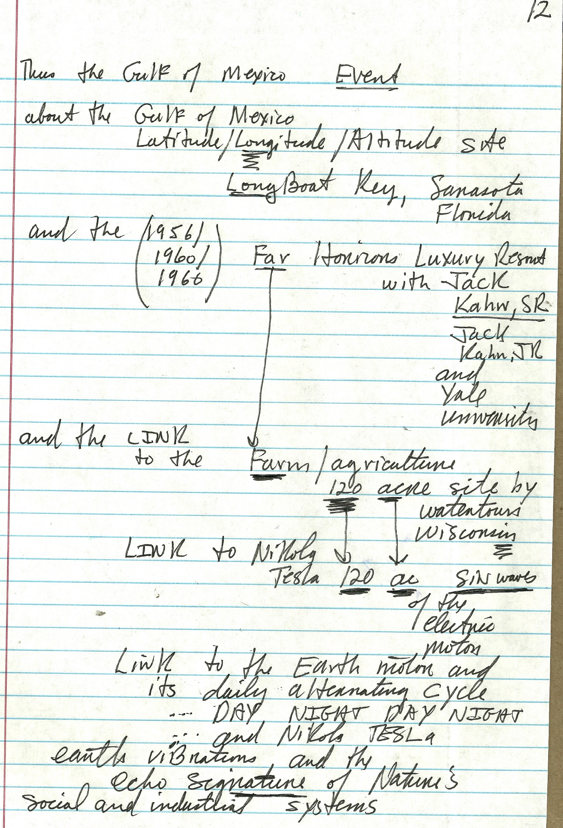 12
Thus the Gulf of Mexico Event
about the Gulf of Mexico
Latitude/Longitude/Altitude site
LongBoat Key, Sarasota
Florida
and the (1956/
1960/
1966)
Far Horizons Luxury Resort
with Jack
Kahn, SR
Jack
Kahn, JR
and
Yale
University
and the LINK
to the Farm/agriculture
120 acre site by
watertown
Wisconsin
LINK to Nikola
Tesla 120 ac SiN waves
of the
electric
motor
LiNK to the Earth motor and
its daily alternating cycle
... DAY NIGHT DAY NIGHT
... and Nikola TESLa
earth vibrations and the
echo signature of Nature's
social and industrial systems